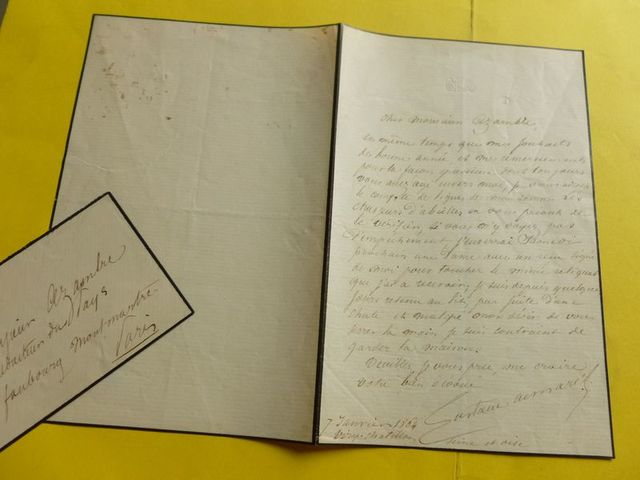 Cher Monsieur Azambre,
en même temps que mes souhaits
de bonne année et mes remerciements
pour la façon gracieuse dont toujours
vous avez agi envers moi, je vous adresse
le compte de lignes de mon roman des
chasseurs d'abeilles en vous priant de
le vérifier. Si vous n'y voyez pas
d'empêchement j'enverrai
prochain une dame avec un reçu signé
de moi pour toucher la somme
que j'ai à recevoir, je suis depuis quelques
jours retenu au lit, par suite d'une
chute et malgré mon désir de vous
serrer la main je suis contraint de
garder la maison.
Veuillez je vous prie me croire
votre bien dévoué
Gustave Aimard
7 Janvier 1864
Viry-Chatillon
Seine et Oise
Monsieur Azambre
Rédacteur du Pays
faubourg Montmartre
Paris